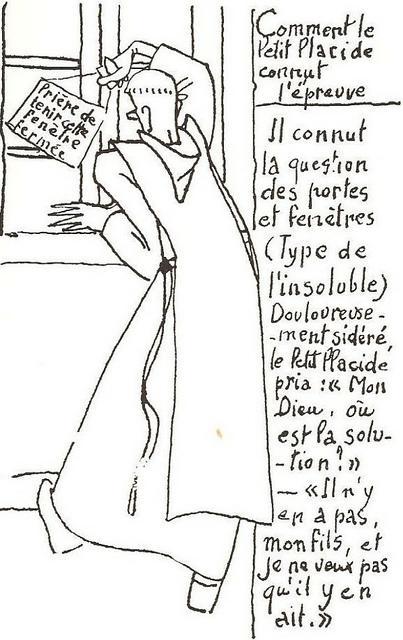 Prière de
tenir cette
fenêtre
fermée
Comment le
Petit Placide
connut
l'épreuve
Il connut
la question
des portes
et fenètres
(Type de
l'insoluble)
Douloureuse-
-ment sidéré,
le Petit Placide
pria : « Mon
Dieu, où
est la solu-
-tion ? »
— « Il n'y
en a pas,
mon fils, et
je ne veux pas
qu'il y en
ait. »